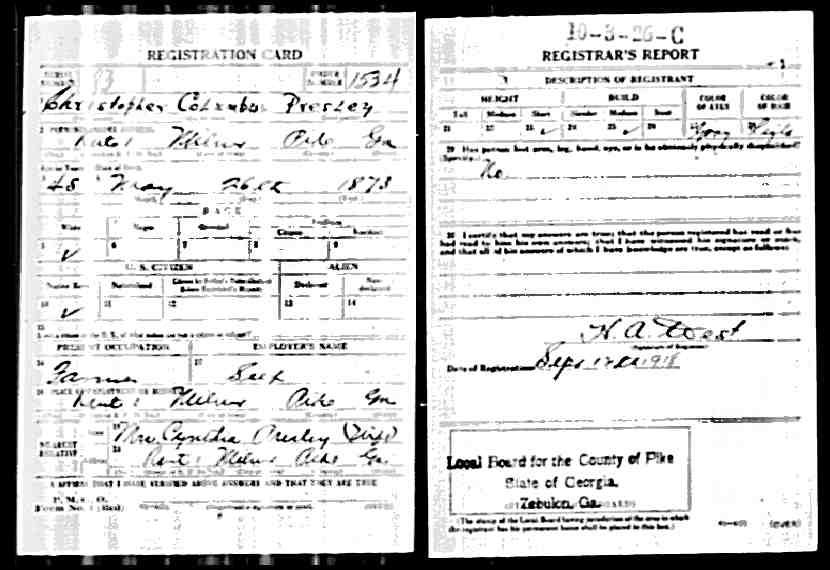 REGISTRATION CARD
SERIAL NUMBER 83
ORDER NUMBER 1534
Christopher Columbus Presley
Milner Pike Ga
45 May 26th 1873
RACE
White Negro Oriental
Citizen
5 6 7 8 9
U. S. CITIZEN ALIEN
Native Born Naturalized
Declarant Non-declarant
10 11 12 13 14
15
PRESENT OCCUPATION EMPLOYER'S NAME
16 17
Farmer Self
18 PLACE OF EMPLOYMENT OR BUSINESS
Milner Pike Ga
NEAREST RELATIVE
Name 19 Mrs Cynthia Presley (Wife)
20 Milner Pike Ga
I AFFIRM THAT I HAVE VERIFIED ABOVE ANSWERS AND THAT THEY ARE TRUE
P. M. G. O.
Form No. 1 (Red)
10-3-26-C
REGISTRAR'S REPORT
DESCRIPTION OF REGISTRANT
HEIGHT BUILD COLOR OF EYES COLOR OF HAIR
Tall Medium Short Slender Medium Stout
21 22 23 24 25 26 27 28
Gray
29 Has person lost arm, leg, hand, eye, or is he obviously physically disqualified?
(Specify.)
No
30 I certify that my answers are true; that the person registered has read or has
had read to him his own answers; that I have witnessed his signature or mark,
and that all of his answers of which I have knowledge are true, except as follows:
H. A. West
(Signature of Registrar)
Date of Registration Sept 12th 1918
Local Board for the County of Pike
State of Georgia,
Zebulon, Ga.
(The stamp of the Local Board having jurisdiction of the area in which
the registrant has his permanent home shall be placed in this box.)
(OVER)